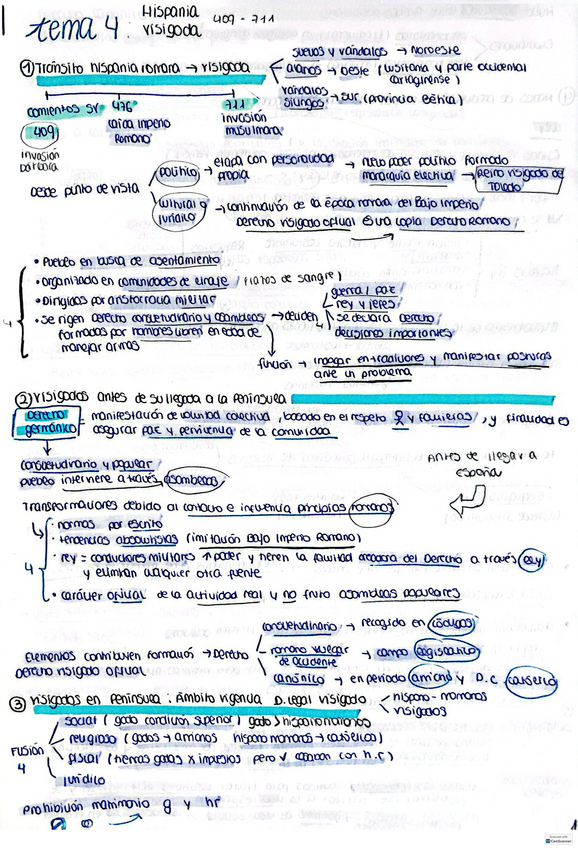 tema 4. Hispania visigoda 409 - 711
① Tránsito hispania romana → visigoda
suevos y vándalos → noroeste
alanos → oeste (Lusitania y parte occidental Cartaginense)
vándalos silingos → sur (provincia Bética)
comienzos SV 476 711
409 caída imperio Romano invasión musulmana
invasión bárbara
Desde punto de vista
político → etapa con personalidad propia → nuevo poder político formado monarquía electiva → Reino visigodo de Toledo
cultural y jurídico → continuación de la época romana del Bajo Imperio
Derecho visigodo oficial es una copia Derecho Romano
• Pueblo en busca de asentamiento
• Organizado en comunidades de linaje / (lazos de sangre)
• Dirigidos por aristocracia militar
• Se rigen derecho consuetudinario y asambleas formadas por hombres libres en edad de manejar armas → deciden
guerra / paz
rey y jefes
se declara derecho
decisiones importantes
función → indagar en tradiciones y manifestar posturas ante un problema
② Visigodos antes de su llegada a la Península
Derecho germánico = manifestación de voluntad colectiva, basado en el respeto y familias, y finalidad es asegurar paz y pervivencia de la comunidad
consuetudinario y popular
pueblo interviene a través asambleas
Antes de llegar a españa
Transformaciones debido al contacto e influencia principios romanos
4
• normas por escrito
• tendencias absolutistas (imitación Bajo Imperio Romano)
• rey = conductores militares ↑ poder, y tienen la facultad creadora del Derecho a través ley y eliminan cualquier otra fuente
• carácter oficial de la actividad real y no fruto asambleas populares
Elementos contribuyen formación → Derecho
Derecho visigodo oficial
consuetudinario → recogido en códigos
romano vulgar de Occidente → campo legislativo
canónico → en período arriano y D.C. católico
③ Visigodos en Península : Ámbito vigencia D. Legal visigodo
hispano-romanos
visigodos
Fusión 4
social (godo condición superior) godo > hispanorromanos
religioso (godos → arrianos hispano romanos → católico)
fiscal (tierras godos x impuestos pero √ con h.r)
jurídico
Prohibición matrimonio g y hr